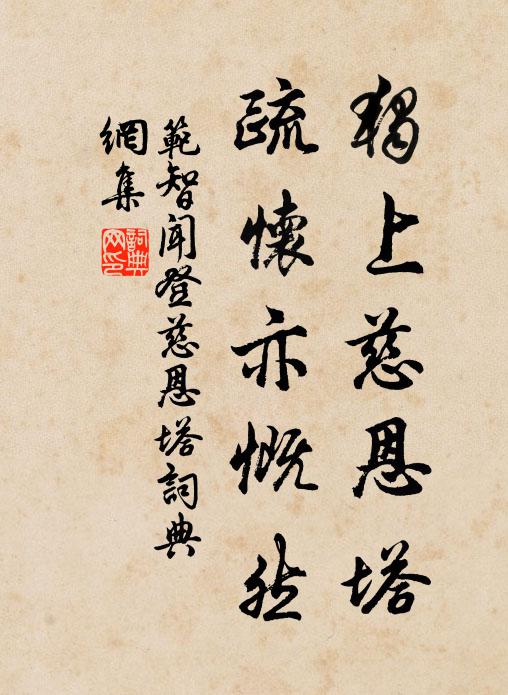 獨上慈恩塔
疏懷亦慨然
範智聞登慈恩塔詞典
網集
詞典
网印